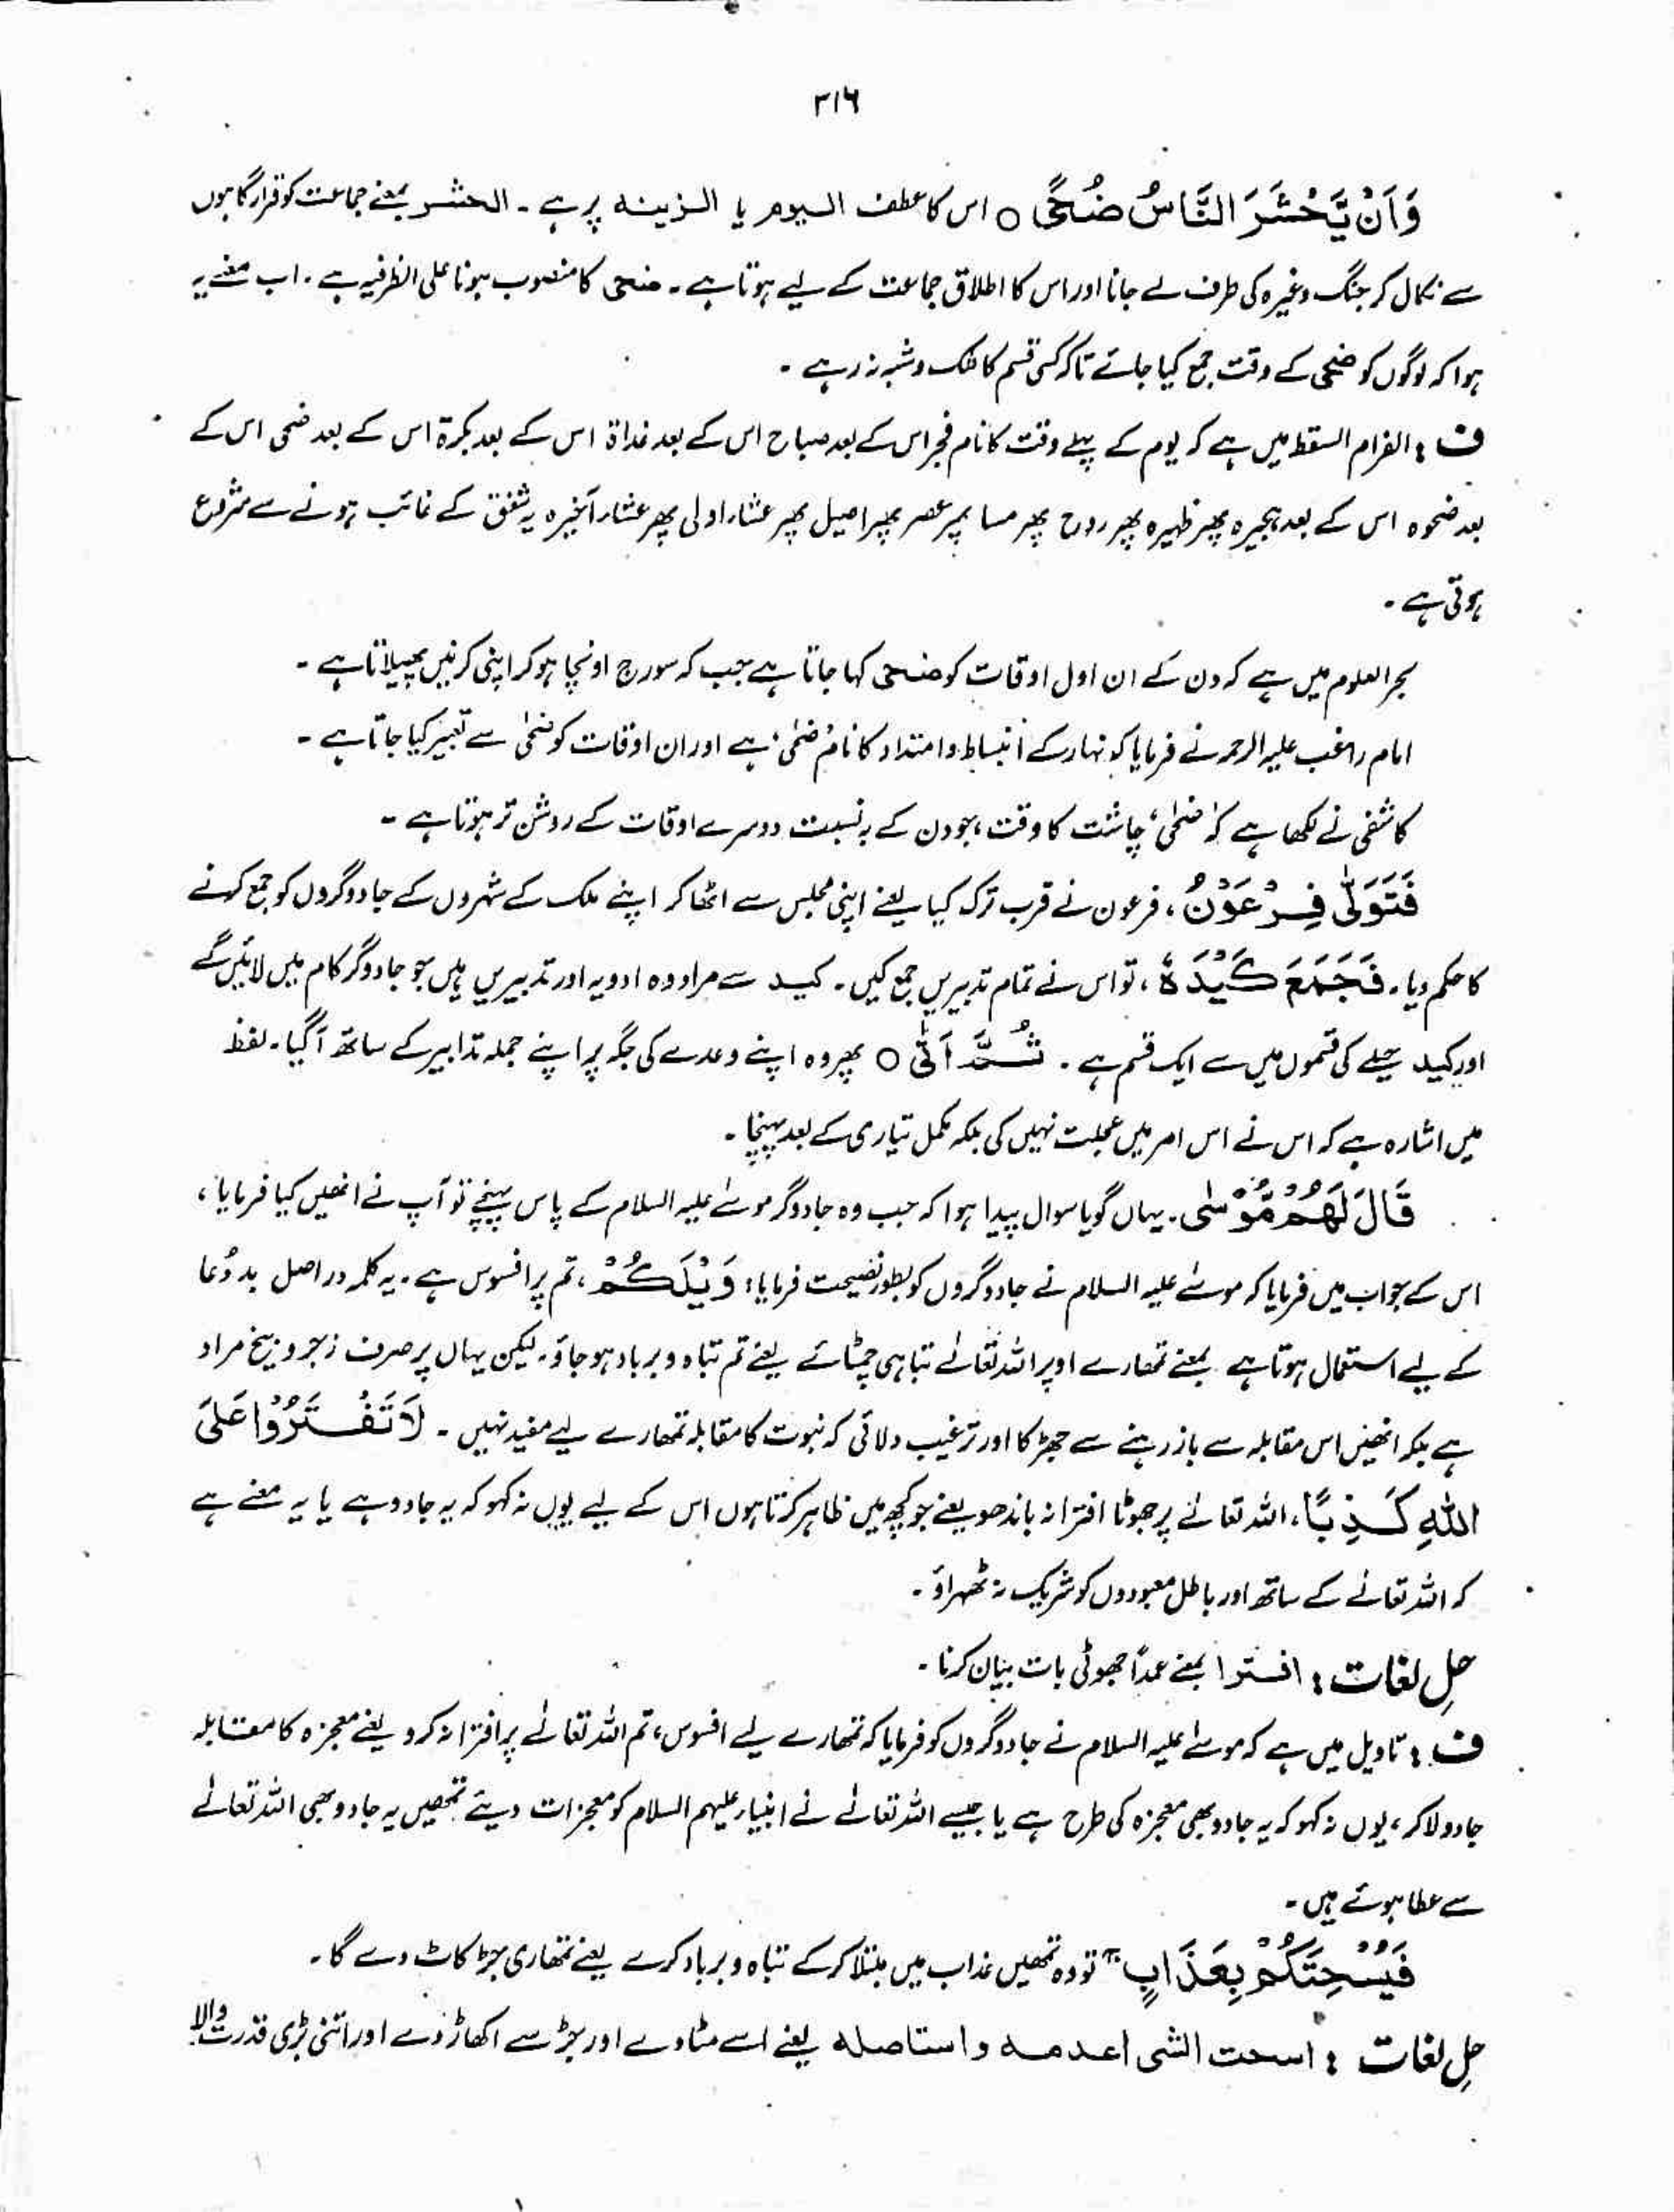 ۳۱۶
وَاَنْ يَّحْشَرَ النَّاسُ ضُحًى ○ اس کا عطف الیوم یا الزینہ پر ہے ۔ الحشر بمعنے جماعت کو قرار گاہوں
سے نکال کر جنگ وغیرہ کی طرف لے جانا اور اس کا اطلاق جماعت کے لیے ہوتا ہے ۔ ضحی کا منصوب ہونا علی الظرفیہ ہے ۔ اب معنے یہ
ہوا کہ لوگوں کو ضحی کے وقت جمع کیا جائے تاکہ کسی قسم کا شک و شبہ نہ رہے ۔
ف : الفرام السقط میں ہے کہ یوم کے پہلے وقت کا نام فجر اس کے بعد صباح اس کے بعد غداۃ اس کے بعد بکرۃ اس کے بعد ضحی اس کے
بعد ضحوہ اس کے بعد ہجیرہ پھر ظہیرہ پھر رواح پھر مسا پھر عصر پھر اصیل پھر عشار اولی پھر عشار آخیرہ یہ شفق کے غائب ہونے سے شروع
ہوتی ہے ۔
بحر العلوم میں ہے کہ دن کے ان اول اوقات کو ضحی کہا جاتا ہے جب کہ سورج اونچا ہو کر اپنی کرنیں پھیلاتا ہے ۔
امام راغب علیہ الرحمہ نے فرمایا کہ نہار کے انبساط و امتداد کا نام ضحٰی ہے اور ان اوقات کو ضحٰی سے تعبیر کیا جاتا ہے ۔
کاشفی نے لکھا ہے کہ 'ضحٰی' چاشت کا وقت ، جو دن کے بہ نسبت دوسرے اوقات کے روشن تر ہوتا ہے ۔
فَتَوَلّٰى فِرْعَوْنُ ، فرعون نے قرب ترک کیا یعنے اپنی مجلس سے اٹھا کر اپنے ملک کے شہروں کے جادوگروں کو جمع کرنے
کا حکم دیا ۔ فَجَمَعَ كَيْدَهٗ ، تو اس نے تمام تدبیریں جمع کیں ۔ کید سے مراد وہ ادویہ اور تدبیریں ہیں جو جادوگر کام میں لائیں گے
اور کید حیلے کی قسموں میں سے ایک قسم ہے ۔ ثُمَّ اَتٰى ○ پھر وہ اپنے وعدے کی جگہ پر اپنے جملہ تدابیر کے ساتھ آگیا ۔ لفظ
میں اشارہ ہے کہ اس نے اس امر میں عجلت نہیں کی بلکہ مکمل تیاری کے بعد پہنچا ۔
قَالَ لَهُمْ مُّوْسٰى ۔ یہاں گویا سوال پیدا ہوا کہ جب وہ جادوگر موسٰے علیہ السلام کے پاس پہنچے تو آپ نے انھیں کیا فرمایا ،
اس کے جواب میں فرمایا کہ موسٰے علیہ السلام نے جادوگروں کو بطور نصیحت فرمایا : وَيْلَكُمْ ، تم پر افسوس ہے ۔ یہ کلمہ دراصل بد دُعا
کے لیے استعمال ہوتا ہے بمعنے تمھارے اوپر اللہ تعالٰے تباہی چمٹائے یعنے تم تباہ و برباد ہو جاؤ ۔ لیکن یہاں پر صرف زجر و بیخ مراد
ہے بلکہ انھیں اس مقابلہ سے باز رہنے سے جھڑکا اور ترغیب دلائی کہ نبوت کا مقابلہ تمھارے لیے مفید نہیں ۔ لَا تَفْتَرُوْا عَلَى
اللهِ كَذِبًا ، اللہ تعالٰے پر جھوٹا افترا نہ باندھو یعنے جو کچھ میں ظاہر کرتا ہوں اس کے لیے یوں نہ کہو کہ یہ جادو ہے یا یہ معنے ہے
کہ اللہ تعالٰے کے ساتھ اور باطل معبودوں کو شریک نہ ٹھہراؤ ۔
حل لغات : افترا بمعنے عمداً جھوٹی بات بیان کرنا ۔
ف : تاویل میں ہے کہ موسٰے علیہ السلام نے جادوگروں کو فرمایا کہ تمھارے لیے افسوس ، تم اللہ تعالٰے پر افترا نہ کرو یعنے معجزہ کا مقابلہ
جادو لا کر ، یوں نہ کہو کہ یہ جادو بھی معجزہ کی طرح ہے یا جیسے اللہ تعالٰے نے انبیار علیہم السلام کو معجزات دیئے تمھیں یہ جادو بھی اللہ تعالٰے
سے عطا ہوئے ہیں ۔
فَيُسْحِتَكُمْ بِعَذَابٍ ج تو وہ تمھیں عذاب میں مبتلا کر کے تباہ و برباد کرے یعنے تمھاری جڑ کاٹ دے گا ۔
حل لغات : اسحت الشی اعدمہ و استاصلہ یعنے اسے مٹا دے اور جڑ سے اکھاڑ دے اور اتنی بڑی قدرت والا